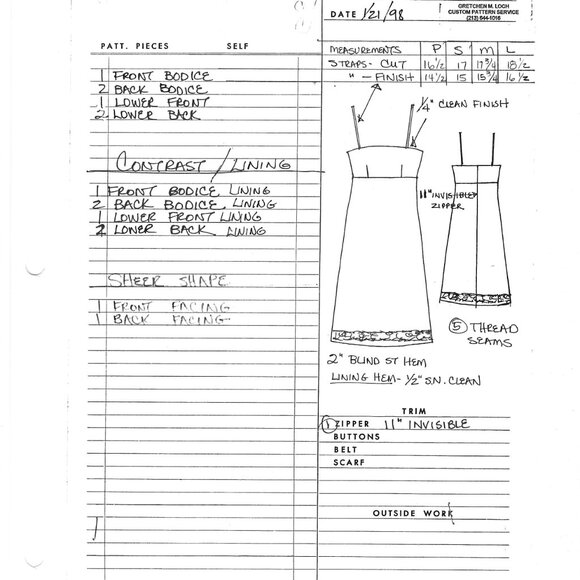 GRETCHEN M. LOCH
CUSTOM PATTERN SERVICE
(213) 644-1016
DATE 1/21/98
PATT. PIECES SELF
MEASUREMENTS P S M L
STRAPS- CUT 16½ 17 17¾ 18½
" - FINISH 14½ 15 15¾ 16½
1 FRONT BODICE
2 BACK BODICE
1 LOWER FRONT
2 LOWER BACK
¼" CLEAN FINISH
CONTRAST / LINING
1 FRONT BODICE LINING
2 BACK BODICE LINING
1 LOWER FRONT LINING
2 LOWER BACK LINING
11" INVISIBLE
ZIPPER
SHEER SHAPE
1 FRONT FACING
1 BACK FACING
5 THREAD
SEAMS
2" BLIND ST HEM
LINING HEM- ½" S.N. CLEAN
TRIM
1 ZIPPER 11" INVISIBLE
BUTTONS
BELT
SCARF
OUTSIDE WORK